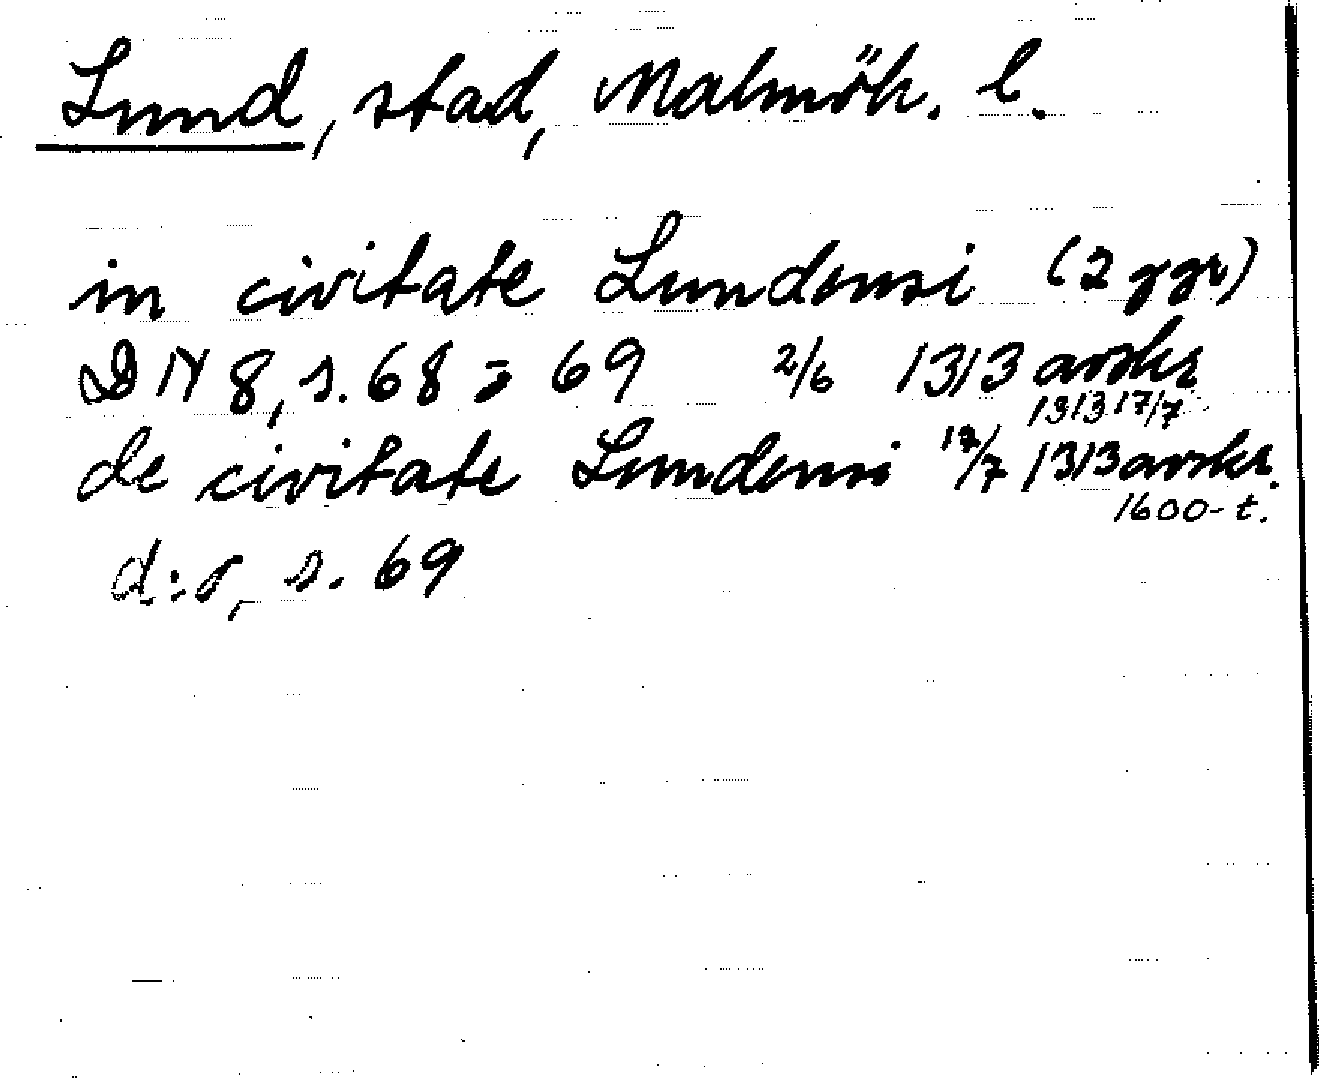 Lund, stad, Malmöh. l.
in civitate Lundensi (2 ggr)
DN 8, s. 68 o 69 2/6 1313 avskr
1313 17/7
de civitate Lundensi 17/7 1313 avskr.
1600-t.
d:o, s. 69